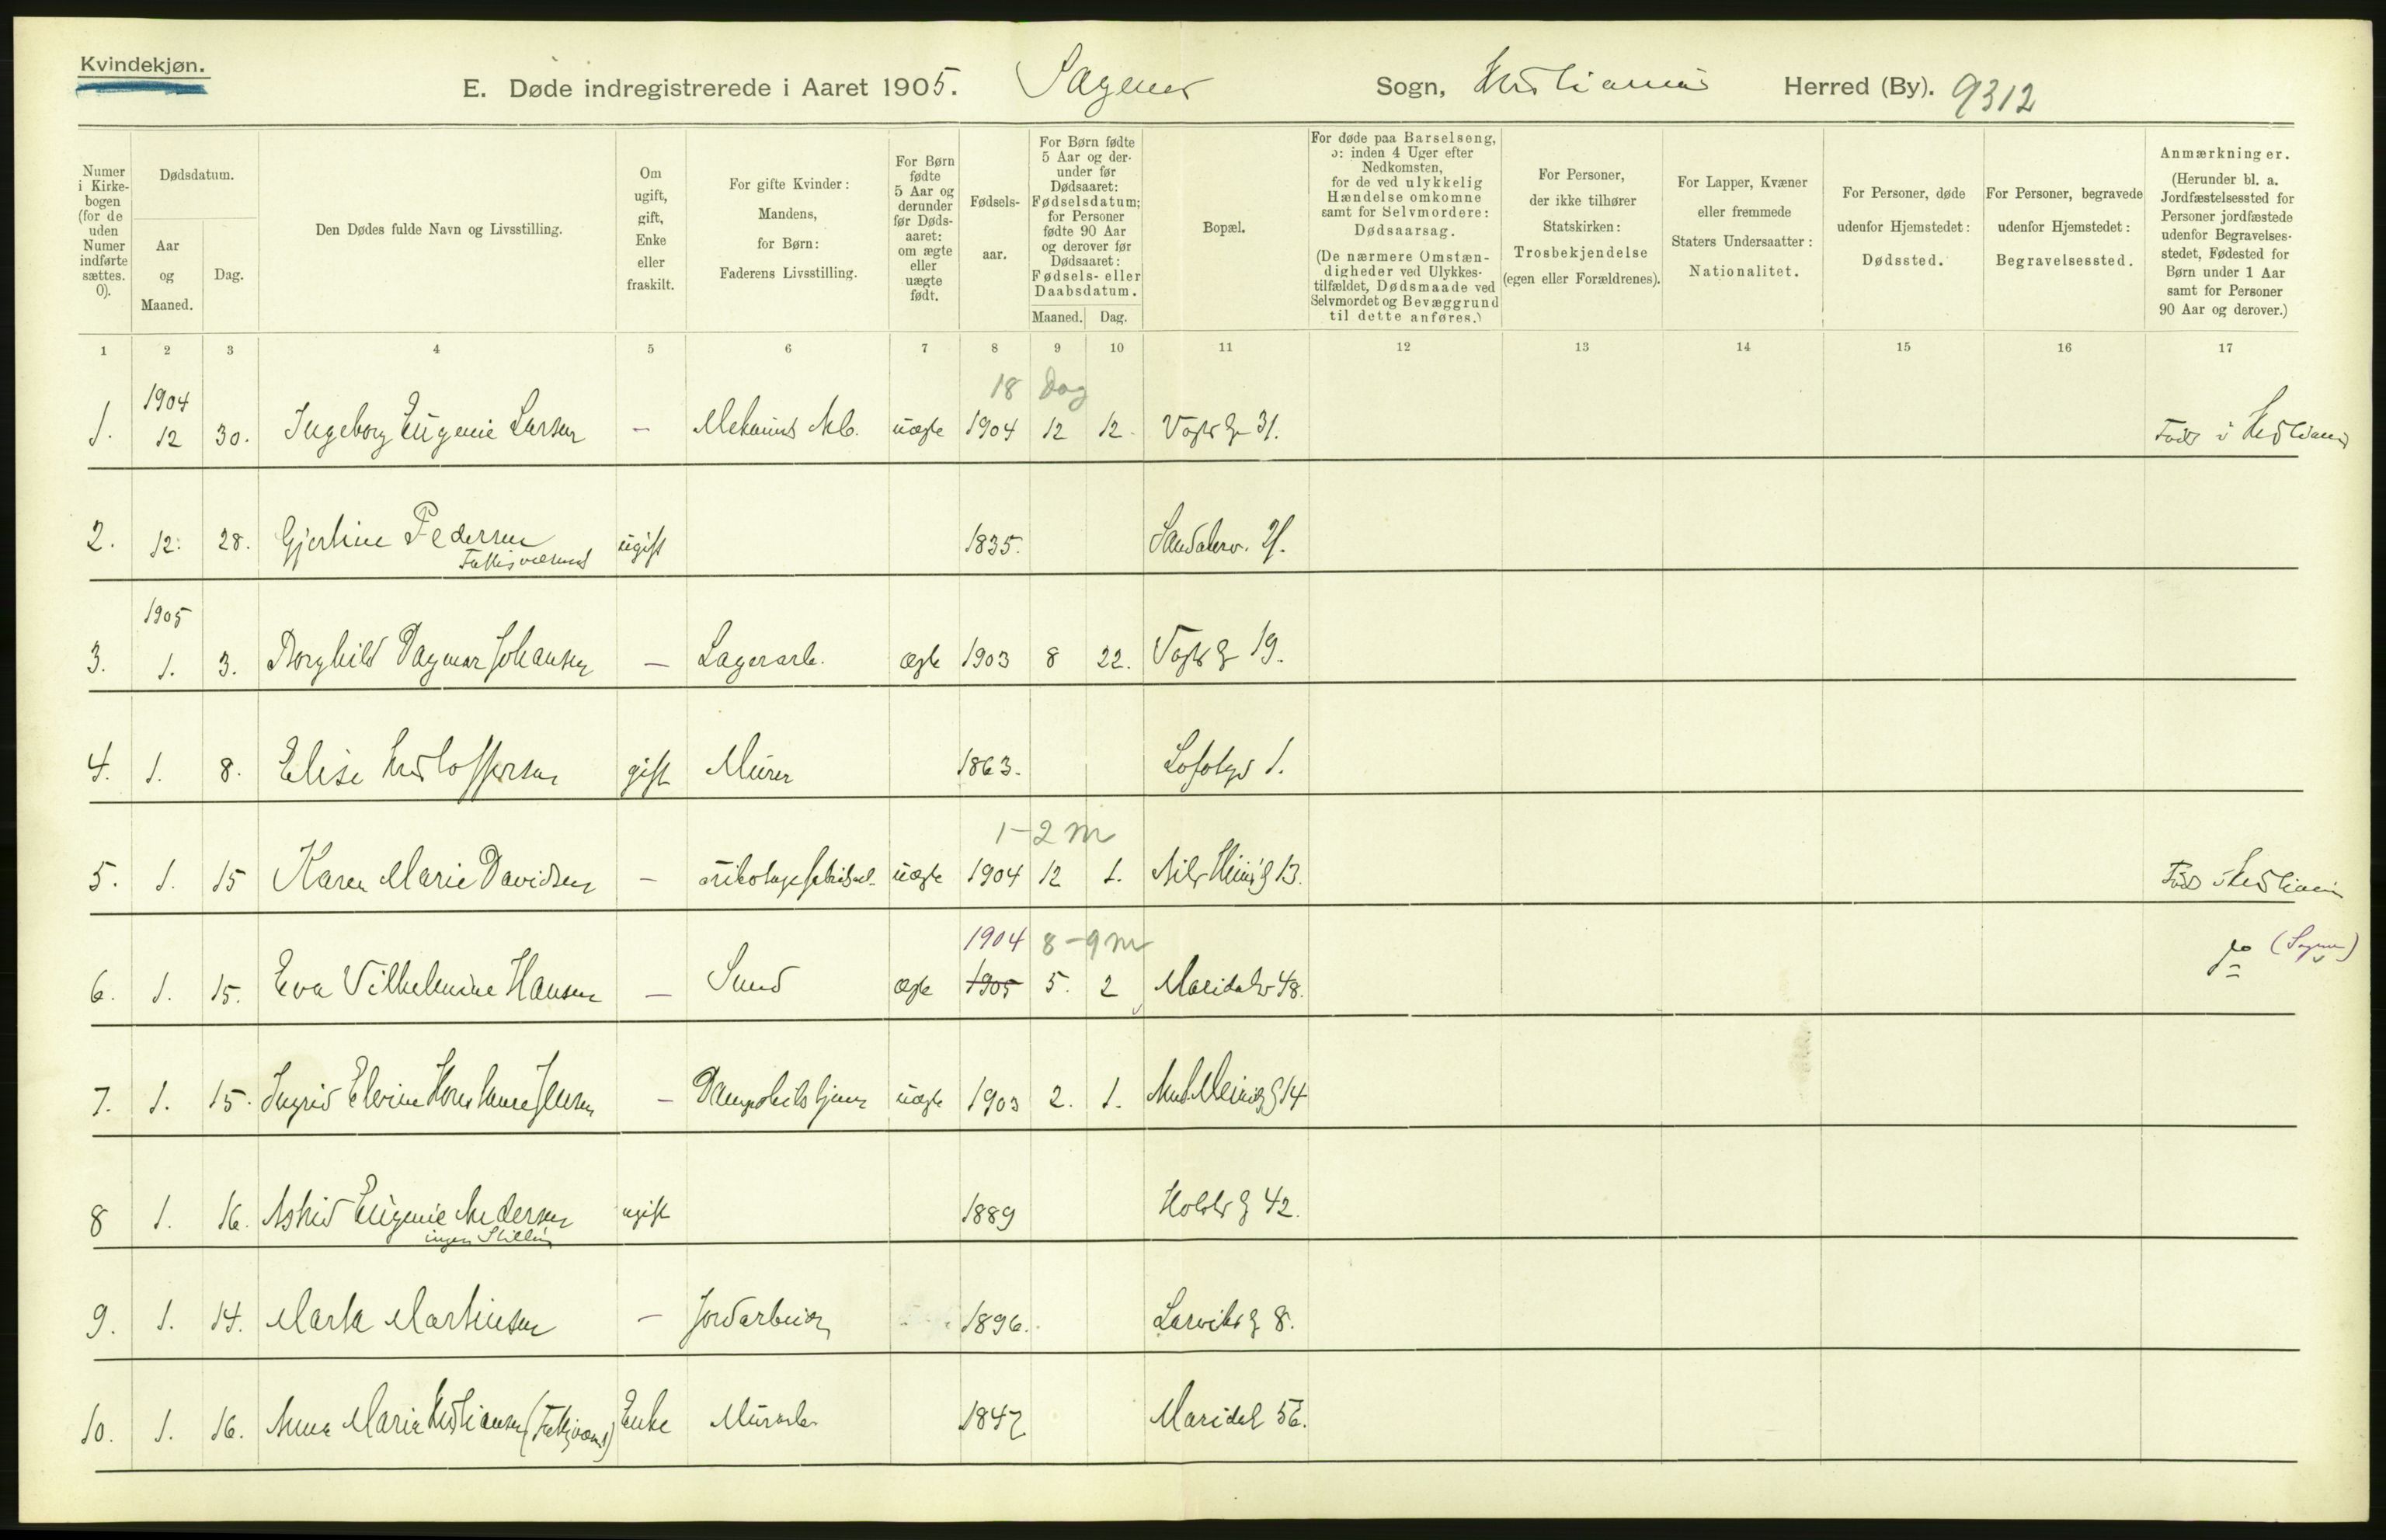 Kvindekjøn.
E. Døde indregistrerede i Aaret 1905. Sagene Sogn, Kristiania Herred (By). 9312
Numer i Kirkebogen (for de uden Numer indførte sættes. 0).
Dødsdatum.
Aar og Maaned.
Dag.
Den Dødes fulde Navn og Livsstilling.
Om ugift, gift, Enke eller fraskilt.
For gifte Kvinder: Mandens, for Børn: Faderens Livsstilling.
For Børn fødte 5 Aar og derunder før Dødsaaret: om ægte eller uægte født.
Fødselsaar.
For Børn fødte 5 Aar og derunder før Dødsaaret: Fødselsdatum; for Personer fødte 90 Aar og derover før Dødsaaret: Fødsels- eller Daabsdatum.
Maaned. Dag.
Bopæl.
For døde paa Barselseng, ɔ: inden 4 Uger efter Nedkomsten, for de ved ulykkelig Hændelse omkomne samt for Selvmordere: Dødsaarsag.
(De nærmere Omstændigheder ved Ulykkestilfældet, Dødsmaade ved Selvmordet og Bevæggrund til dette anføres.)
For Personer, der ikke tilhører Statskirken: Trosbekjendelse (egen eller Forældrenes).
For Lapper, Kvæner eller fremmede Staters Undersaatter: Nationalitet.
For Personer, døde udenfor Hjemstedet: Dødssted.
For Personer, begravede udenfor Hjemstedet: Begravelsessted.
Anmærkninger. (Herunder bl. a. Jordfæstelsessted for Personer jordfæstede udenfor Begravelsesstedet, Fødested for Børn under 1 Aar samt for Personer 90 Aar og derover.)
1 2 3 4 5 6 7 8 9 10 11 12 13 14 15 16 17
1904 18 Dag
1. 12 30. Ingeborg Eugenie Larsen — uægte 1904 12 12. Vogts g 31. Født i Kristiania
2. 12. 28. Gjertine Pedersen ugift 1835. 21.
1905
3. 1. 3. Borghild Dagmar Johansen — Lagerarb. ægte 1903 8 22. Vogts g 19.
4. 1. 8. Elise Kristoffersen gift Murer 1863. 1.
1-2 m
5. 1. 15 Karen Marie Davidsen — uægte 1904 12 1. 13. Født i Kristiania
1904 8-9 m
6. 1. 15. Eva Vilhelmine Hansen — Smed ægte 1905 5. 2 Maridalsv 48. do (Sagene)
7. 1. 15. Ingrid Elvine Jensen — uægte 1903 2. 1. 14
8 1. 16. Astrid Eugenie Andersen ugift 1889 Holsts g 42.
ingen Stilling
9. 1. 14. Marta Martinsen — Jordarbeider 1896. Larviks g 8.
10. 1. 16. Anna Marie Kristiansen Enke Murarb. 1847 Maridal 56.